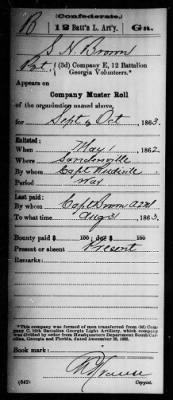 Confederate.
B | 12 Batt'n L. Art'y. | Ga.
S N Brown
Pvt, (3d) Company E, 12 Battalion
Georgia Volunteers.*
Appears on
Company Muster Roll
of the organization named above,
for Sept & Oct, 1863.
Enlisted:
When May 1, 1862
Where Sandersville
By whom Capt
Period War
Last paid:
By whom Capt
To what time Aug 31, 1863.
Bounty paid $ 100; due $ 100
Present or absent Present
Remarks:
*This company was formed of men transferred from (2d) Company
C, 12th Battalion Georgia Light Artillery, which company was
divided by order from Headquarters Department South Carolina,
Georgia and Florida, dated December
Book mark:
(642)
Copyist.